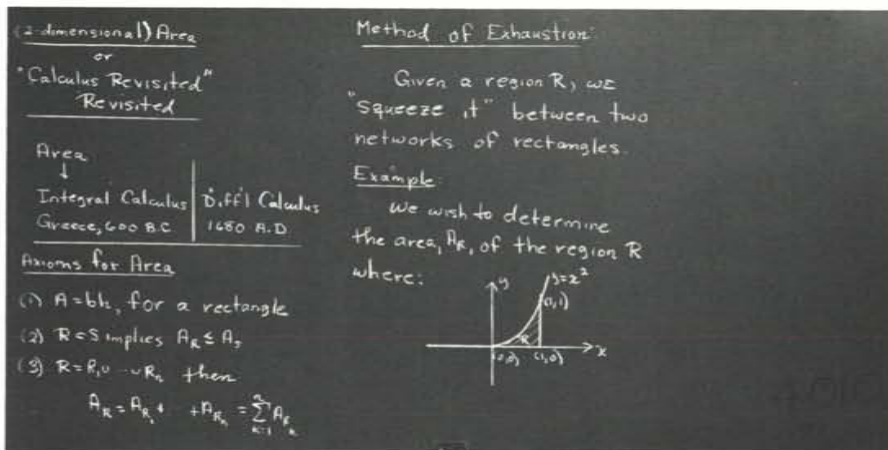 (2-dimensional) Area
or
"Calculus Revisited"
Revisited
Area
↓
Integral Calculus | Diff'l Calculus
Greece, 600 B.C | 1680 A.D.
Axioms for Area
(1) A = bh, for a rectangle
(2) R ⊂ S implies A_R ≤ A_S
(3) R = R_1 ∪ ... ∪ R_n then
A_R = A_{R_1} + ... + A_{R_n} = \sum_{k=1}^{n} A_{R_k}
Method of Exhaustion
Given a region R, we
"squeeze it" between two
networks of rectangles.
Example
We wish to determine
the area, A_R, of the region R
where:
y
y=x²
(1,1)
R
(0,0) (1,0) x